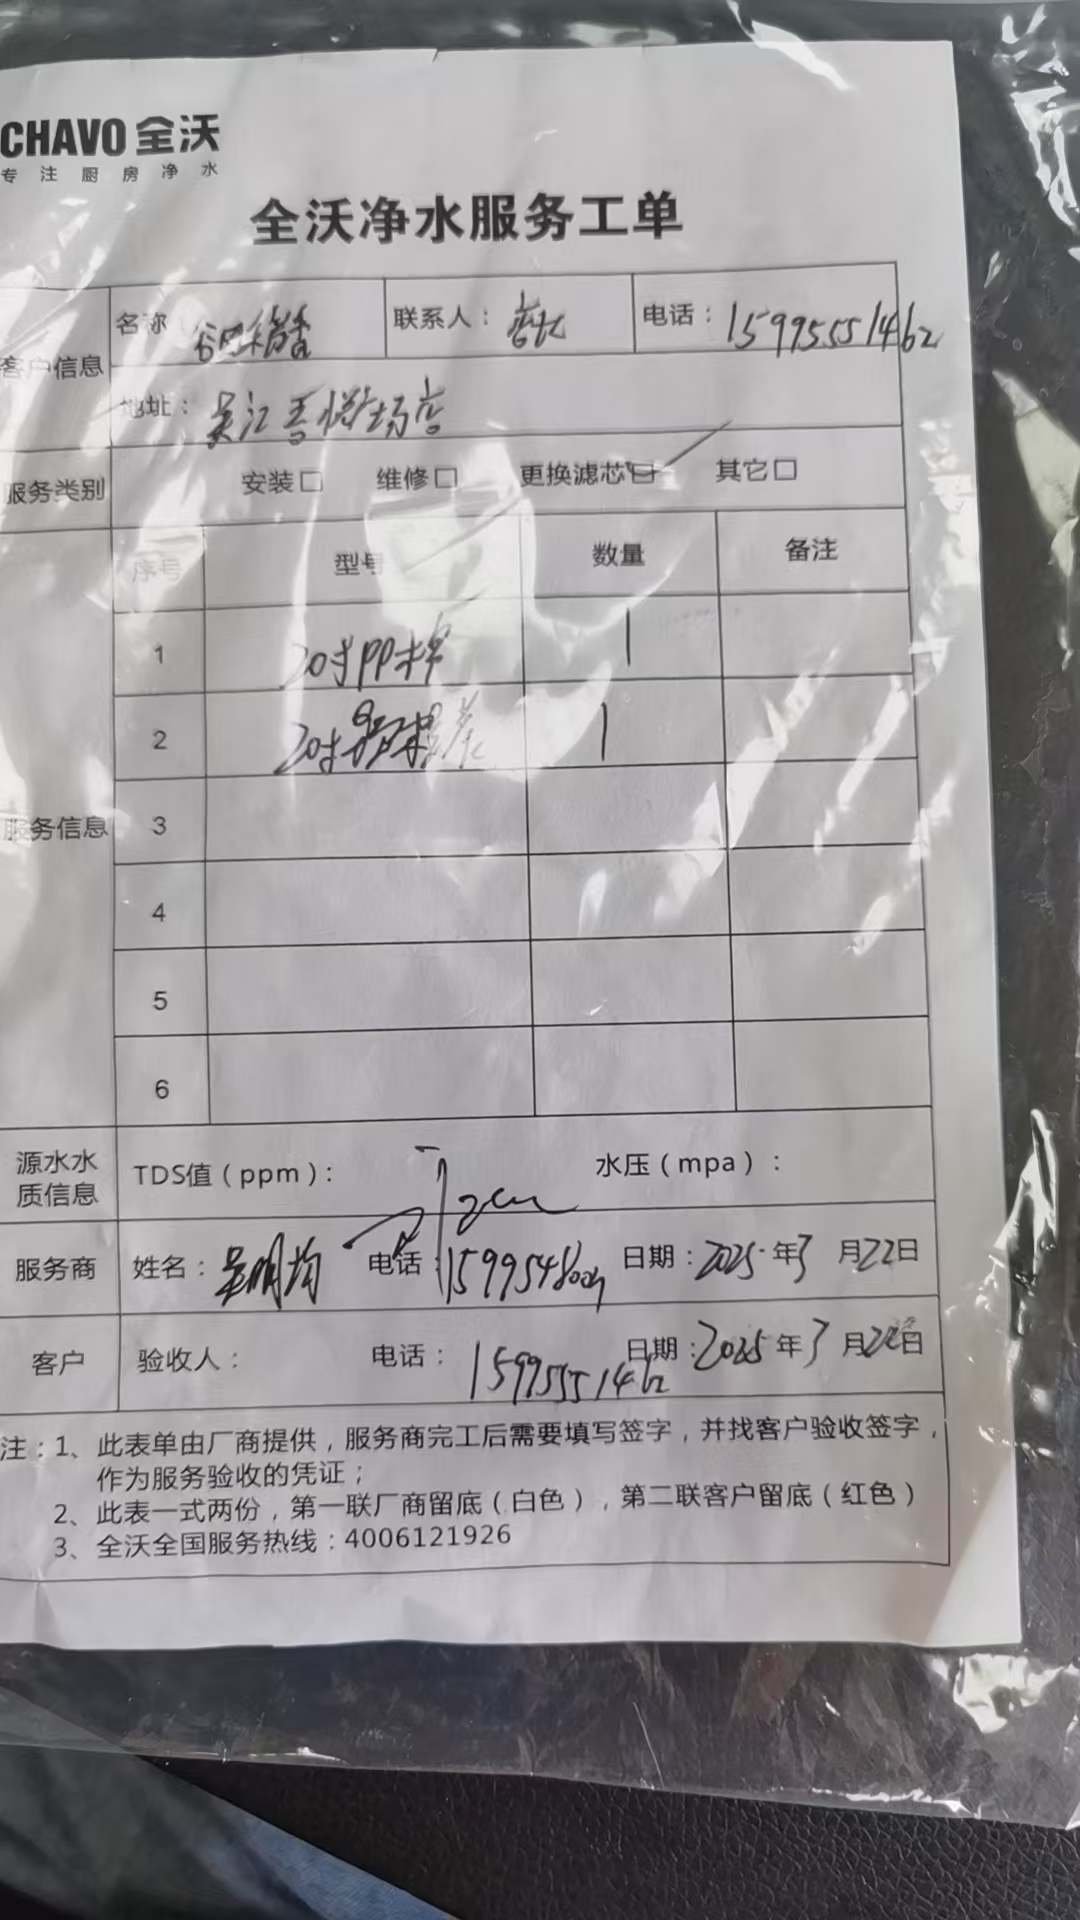 CHAVO 全沃
专注厨房净水
全沃净水服务工单
客户信息 名称 联系人： 店长 电话：15995551462
地址： 吴江吾悦广场店
服务类别 安装□ 维修□ 更换滤芯□ 其它□
序号 型号 数量 备注
1 20寸PP棉 1
2 20寸 1
服务信息 3
4
5
6
源水水质信息 TDS值（ppm）： 水压（mpa）：
服务商 姓名：吴明均 电话： 日期：2025年3月22日
客户 验收人： 电话：15995551462 日期：2025年3月22日
注：1、此表单由厂商提供，服务商完工后需要填写签字，并找客户验收签字，
作为服务验收的凭证；
2、此表一式两份，第一联厂商留底（白色），第二联客户留底（红色）
3、全沃全国服务热线：4006121926